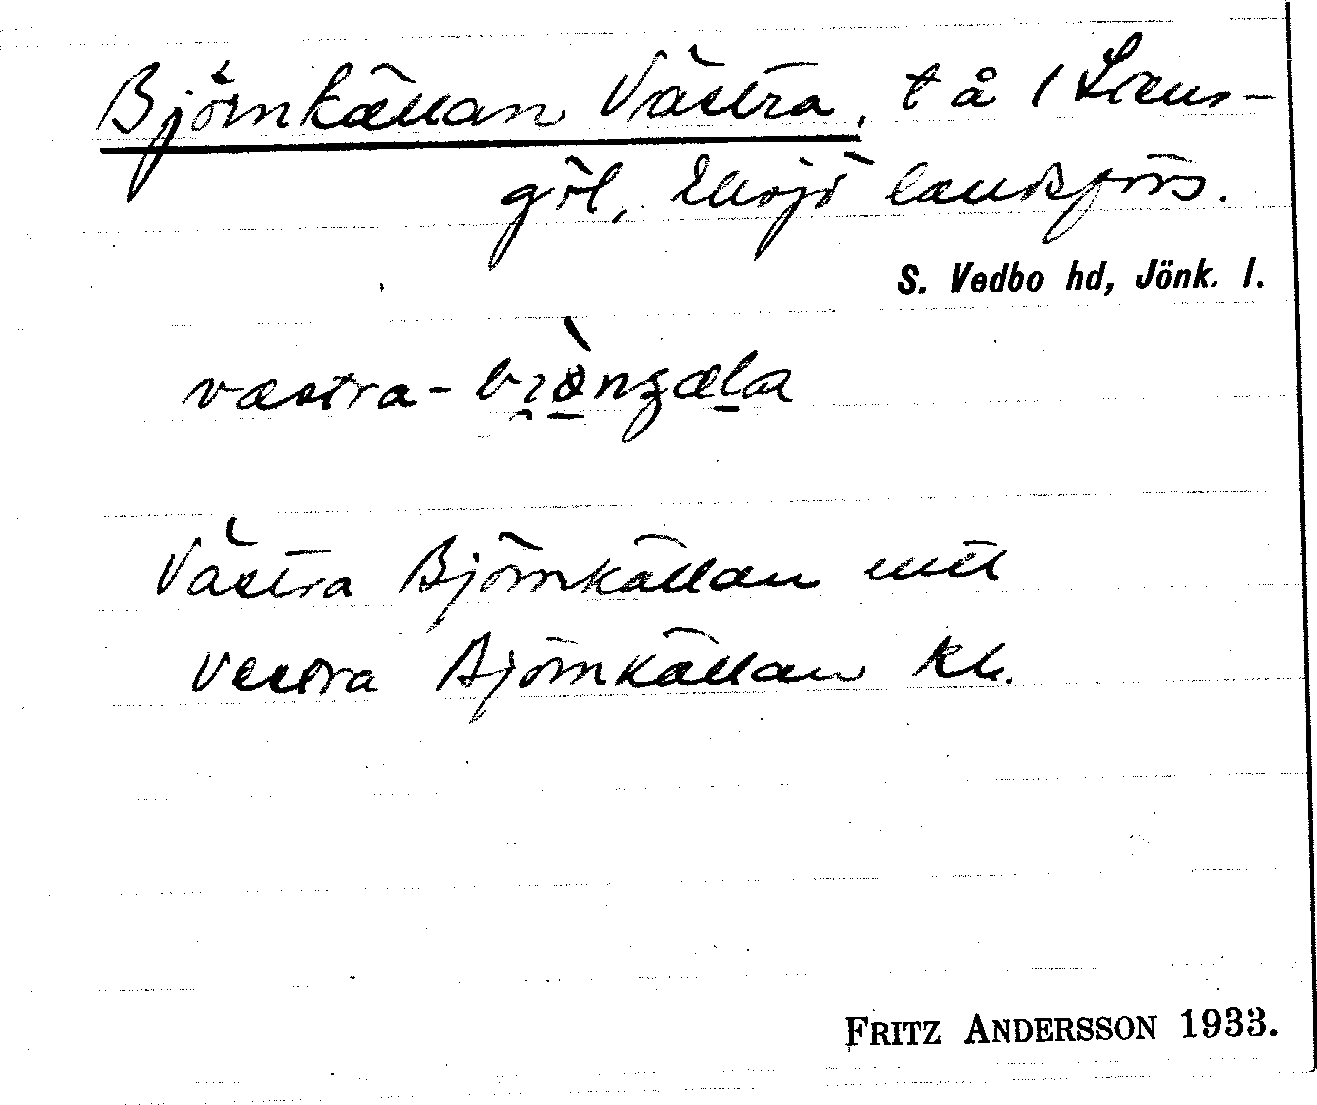 Björnkällan Västra, t å 1 Lens-
göl, Eksjö landsförs.
S. Vedbo hd, Jönk. l.
västra-
Västra Björnkällan mtl
Vestra Björnkällan kb.
FRITZ ANDERSSON 1933.